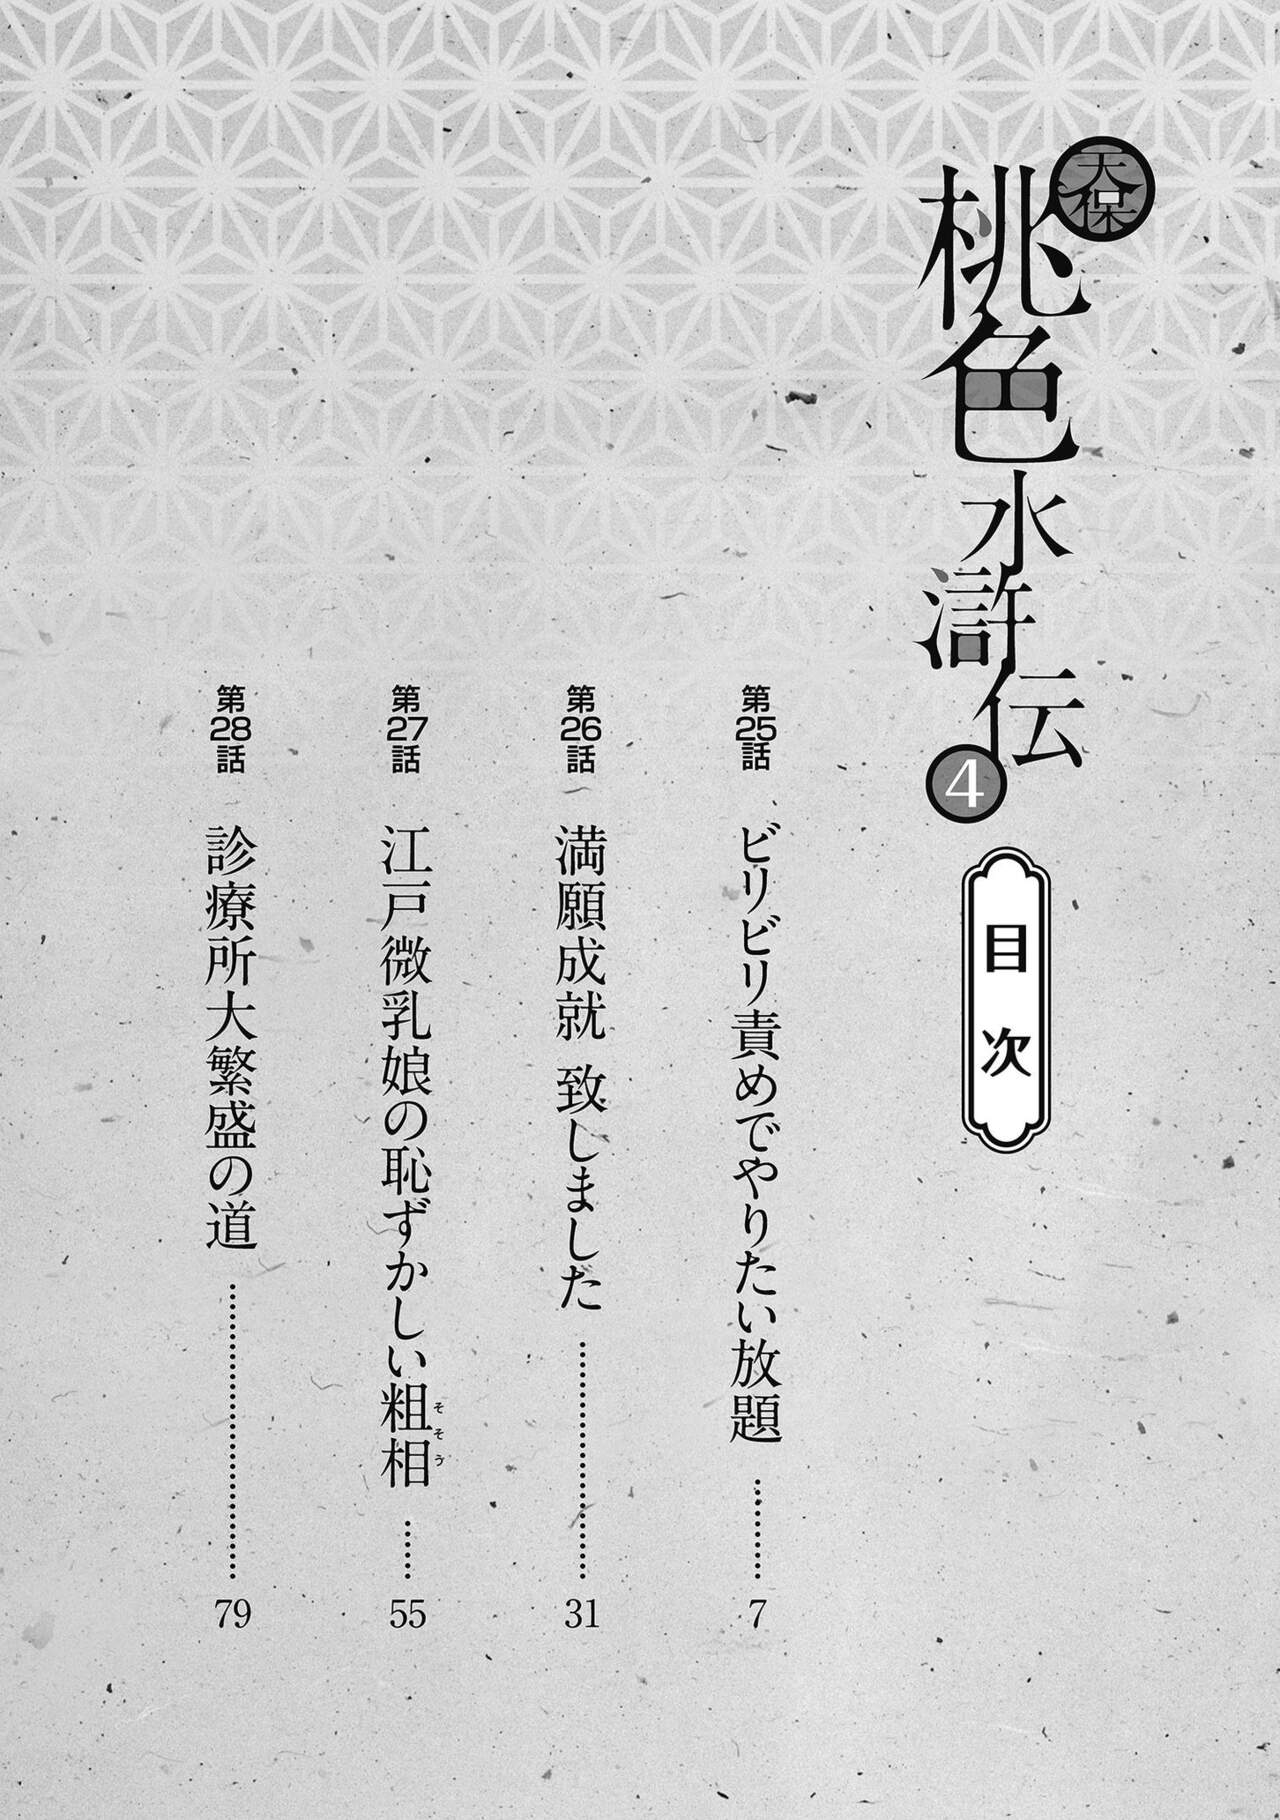 天保
桃色水滸伝
4
目次
第25話 ビリビリ責めでやりたい放題 ………… 7
第26話 満願成就 致しました ………… 31
第27話 江戸微乳娘の恥ずかしい粗相 …… 55
そそう
第28話 診療所大繁盛の道 ………… 79